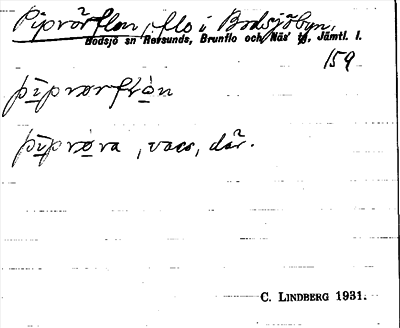 Piprörflon, flo i Bodsjöbyn,
Bodsjö sn Revsunds, Brunflo och Näs' tg, Jämtl. l.
159
pìprørflòn
pìprøra, vass, där.
C. LINDBERG 1931.